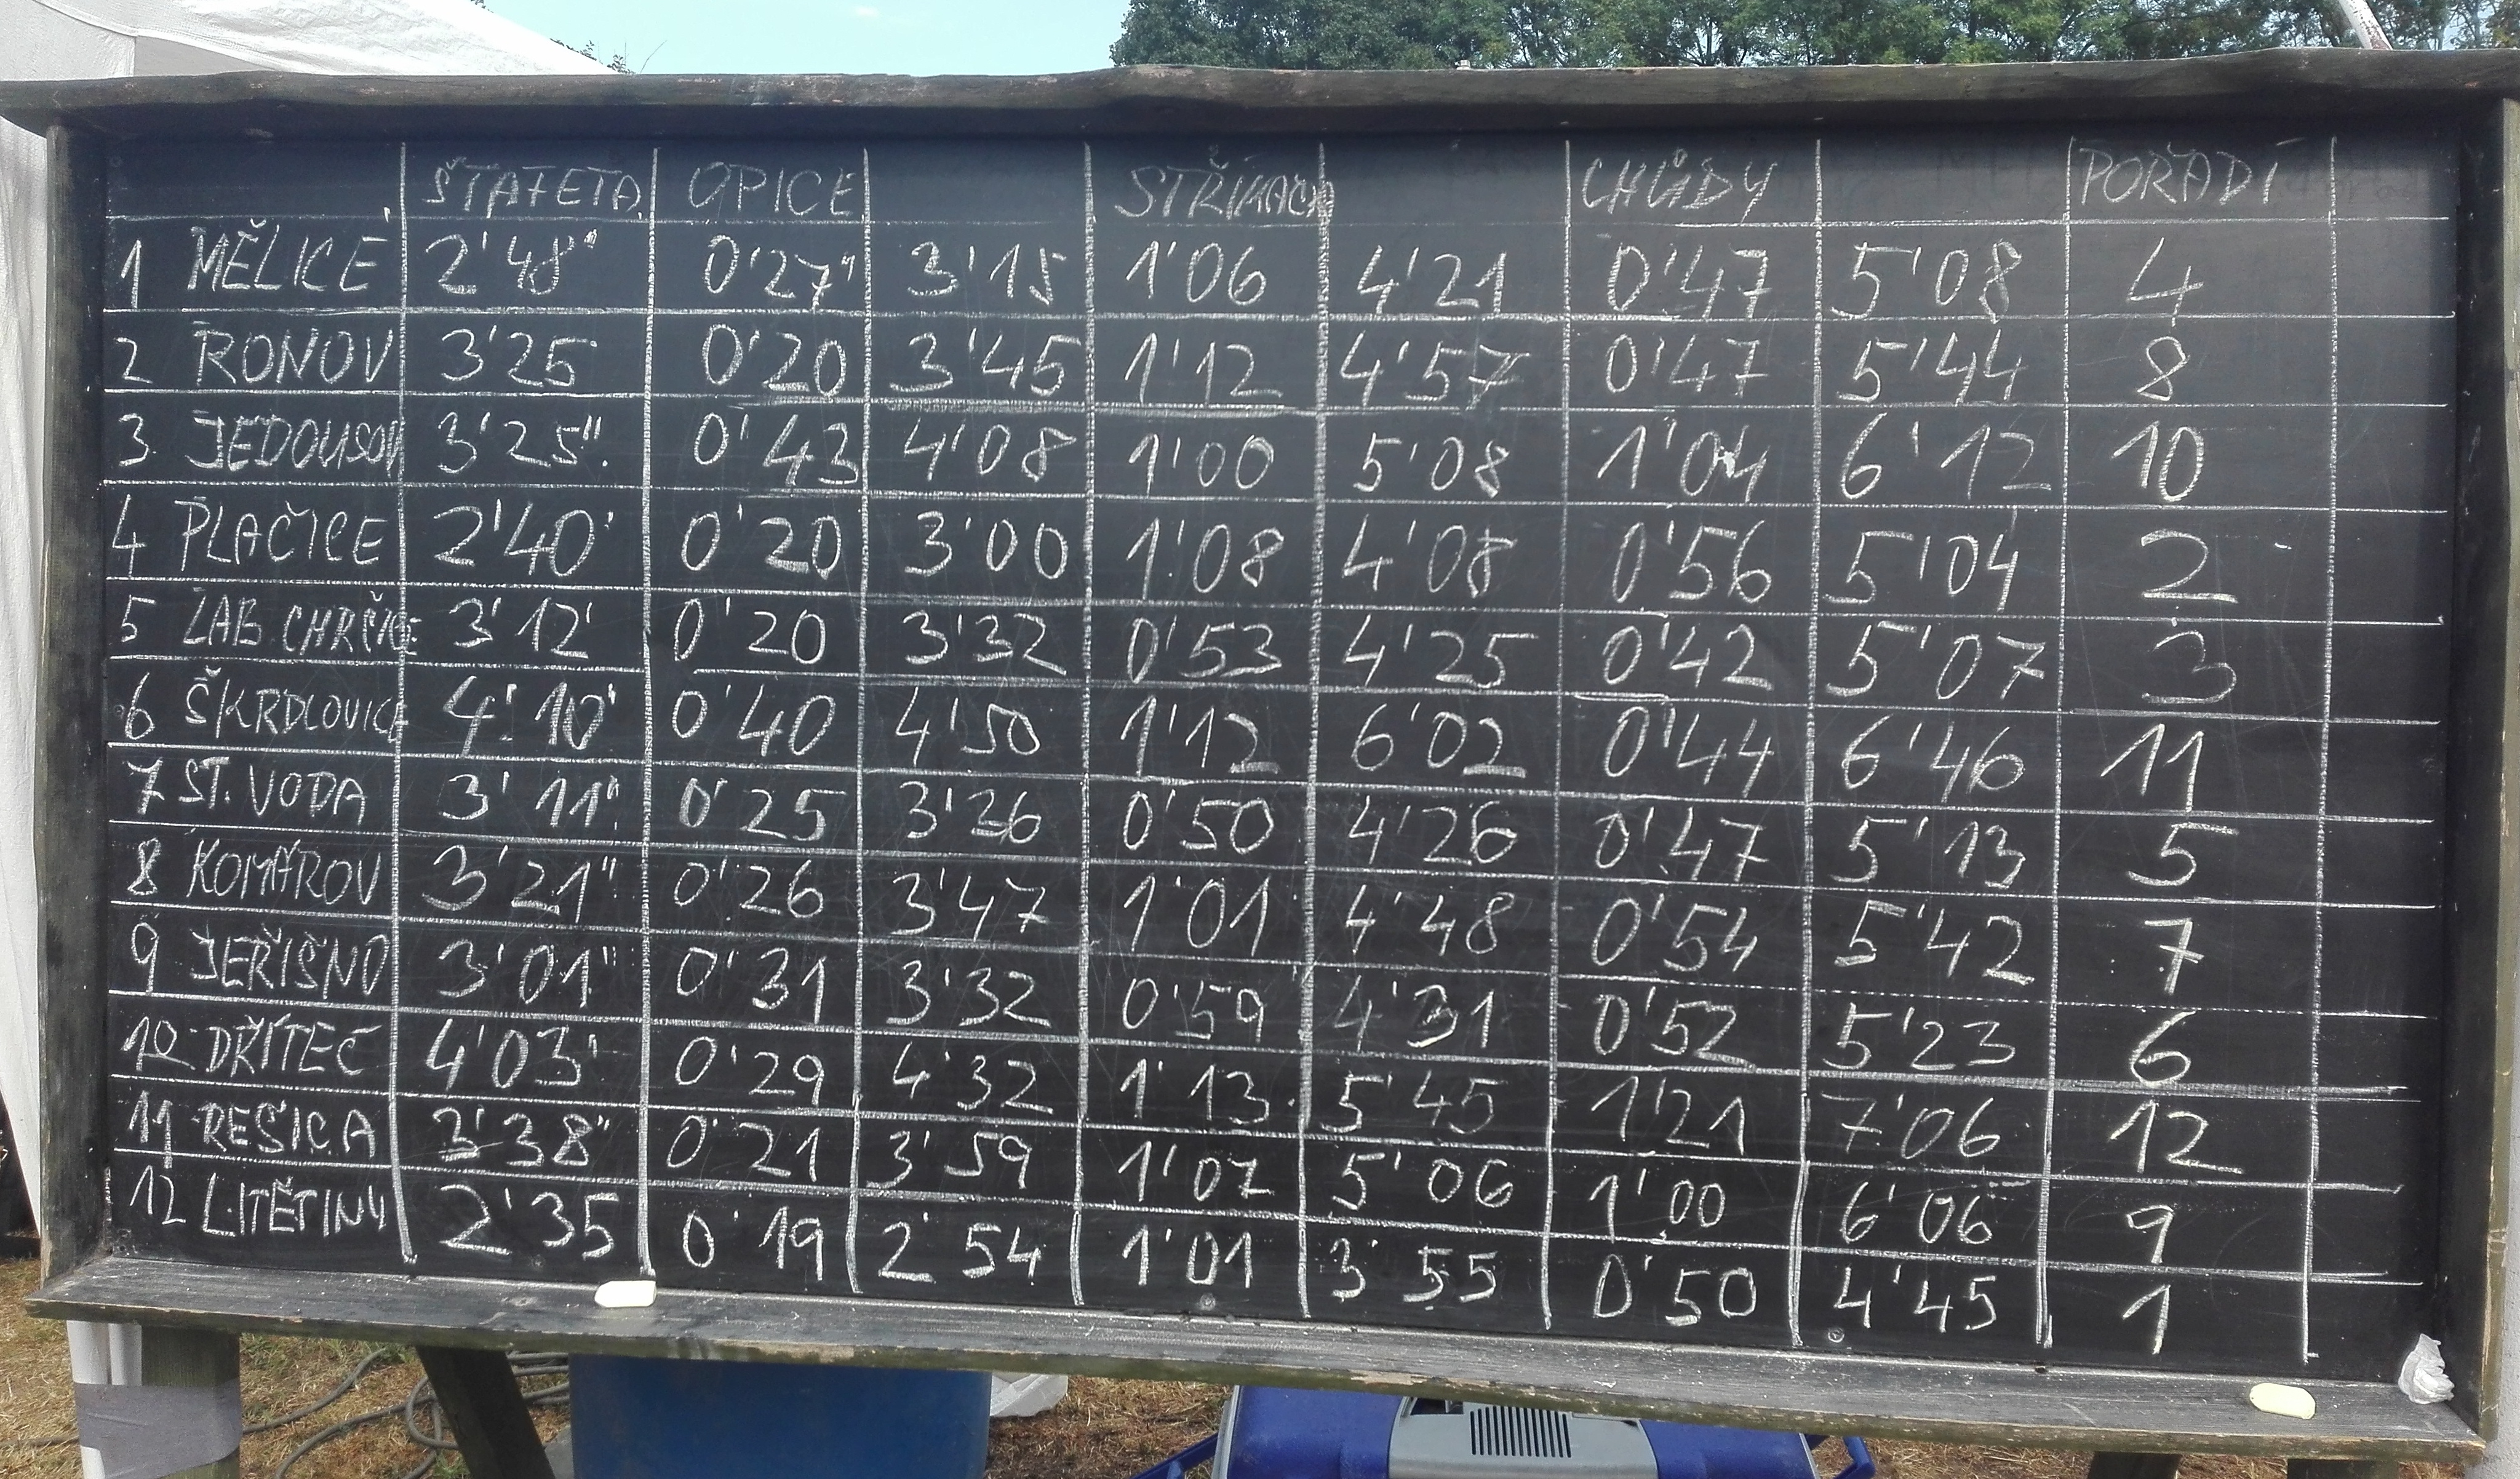 ŠTAFETA OPICE STŘÍKAČK CHŮDY POŘADÍ
1 MĚLICE 2'48" 0'27" 3'15 1'06 4'21 0'47 5'08 4
2 RONOV 3'25 0'20 3'45 1'12 4'57 0'47 5'44 8
3 JEDOUSOV 3'25" 0'43 4'08 1'00 5'08 1'04 6'12 10
4 PLAČICE 2'40' 0'20 3'00 1'08 4'08 0'56 5'04 2
5 ZAB. CHRČICE 3'12' 0'20 3'32 0'53 4'25 0'42 5'07 3
6 ŠKRDLOVICE 4'10' 0'40 4'50 1'12 6'02 0'44 6'46 11
7 ST. VODA 3'11" 0'25 3'36 0'50 4'26 0'47 5'13 5
8 KOMÁROV 3'21" 0'26 3'47 1'01 4'48 0'54 5'42 7
9 JEŘIŠNO 3'01" 0'31 3'32 0'59 4'31 0'52 5'23 6
10 DŘÍTEČ 4'03' 0'29 4'32 1'13 5'45 1'21 7'06 12
11 REŠICA 3'38" 0'21 3'59 1'07 5'06 1'00 6'06 9
12 LITĚTINY 2'35 0'19 2'54 1'01 3'55 0'50 4'45 1